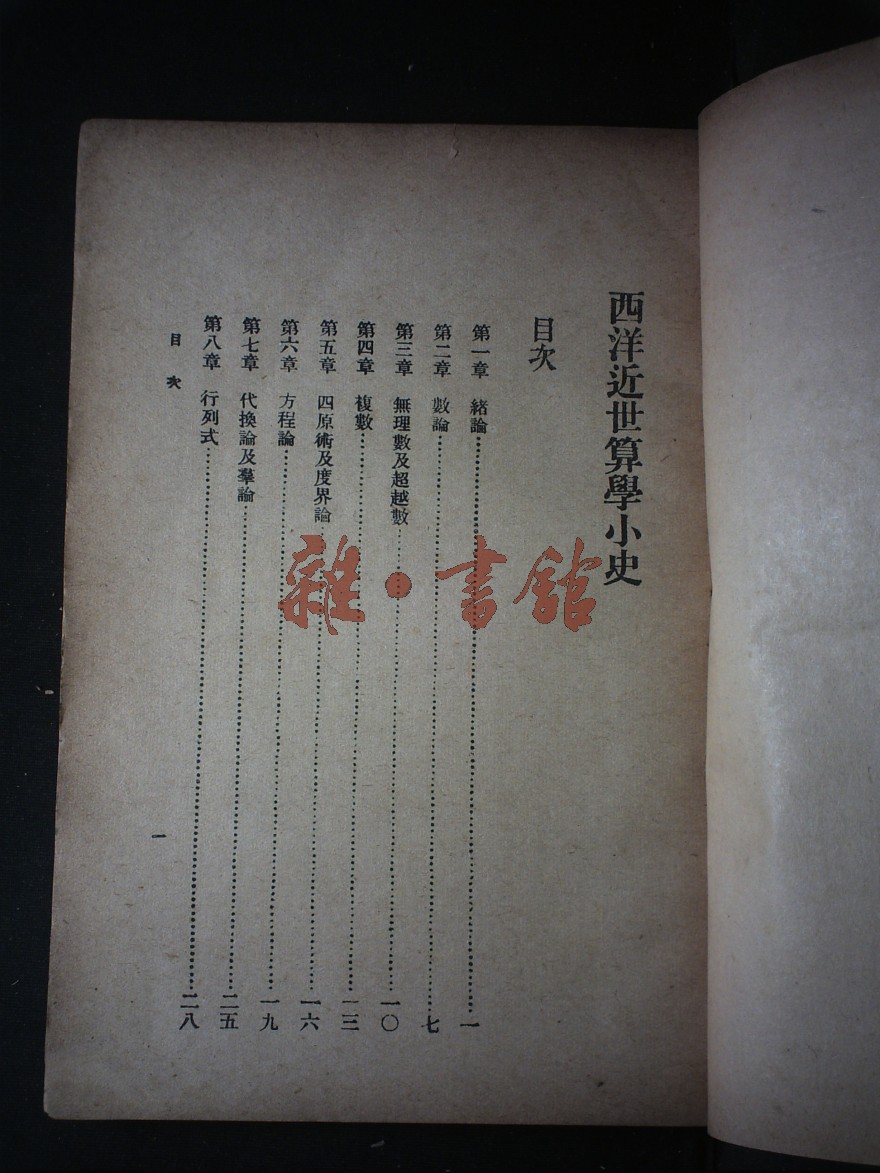 西洋近世算學小史
目次
第一章 緒論⋯⋯⋯⋯一
第二章 數論⋯⋯⋯⋯七
第三章 無理數及超越數⋯⋯⋯⋯一〇
第四章 複數⋯⋯⋯⋯一三
第五章 四原術及度界論⋯⋯⋯⋯一六
第六章 方程論⋯⋯⋯⋯一九
第七章 代換論及羣論⋯⋯⋯⋯二五
第八章 行列式⋯⋯⋯⋯二八
目次
一
雜·書館